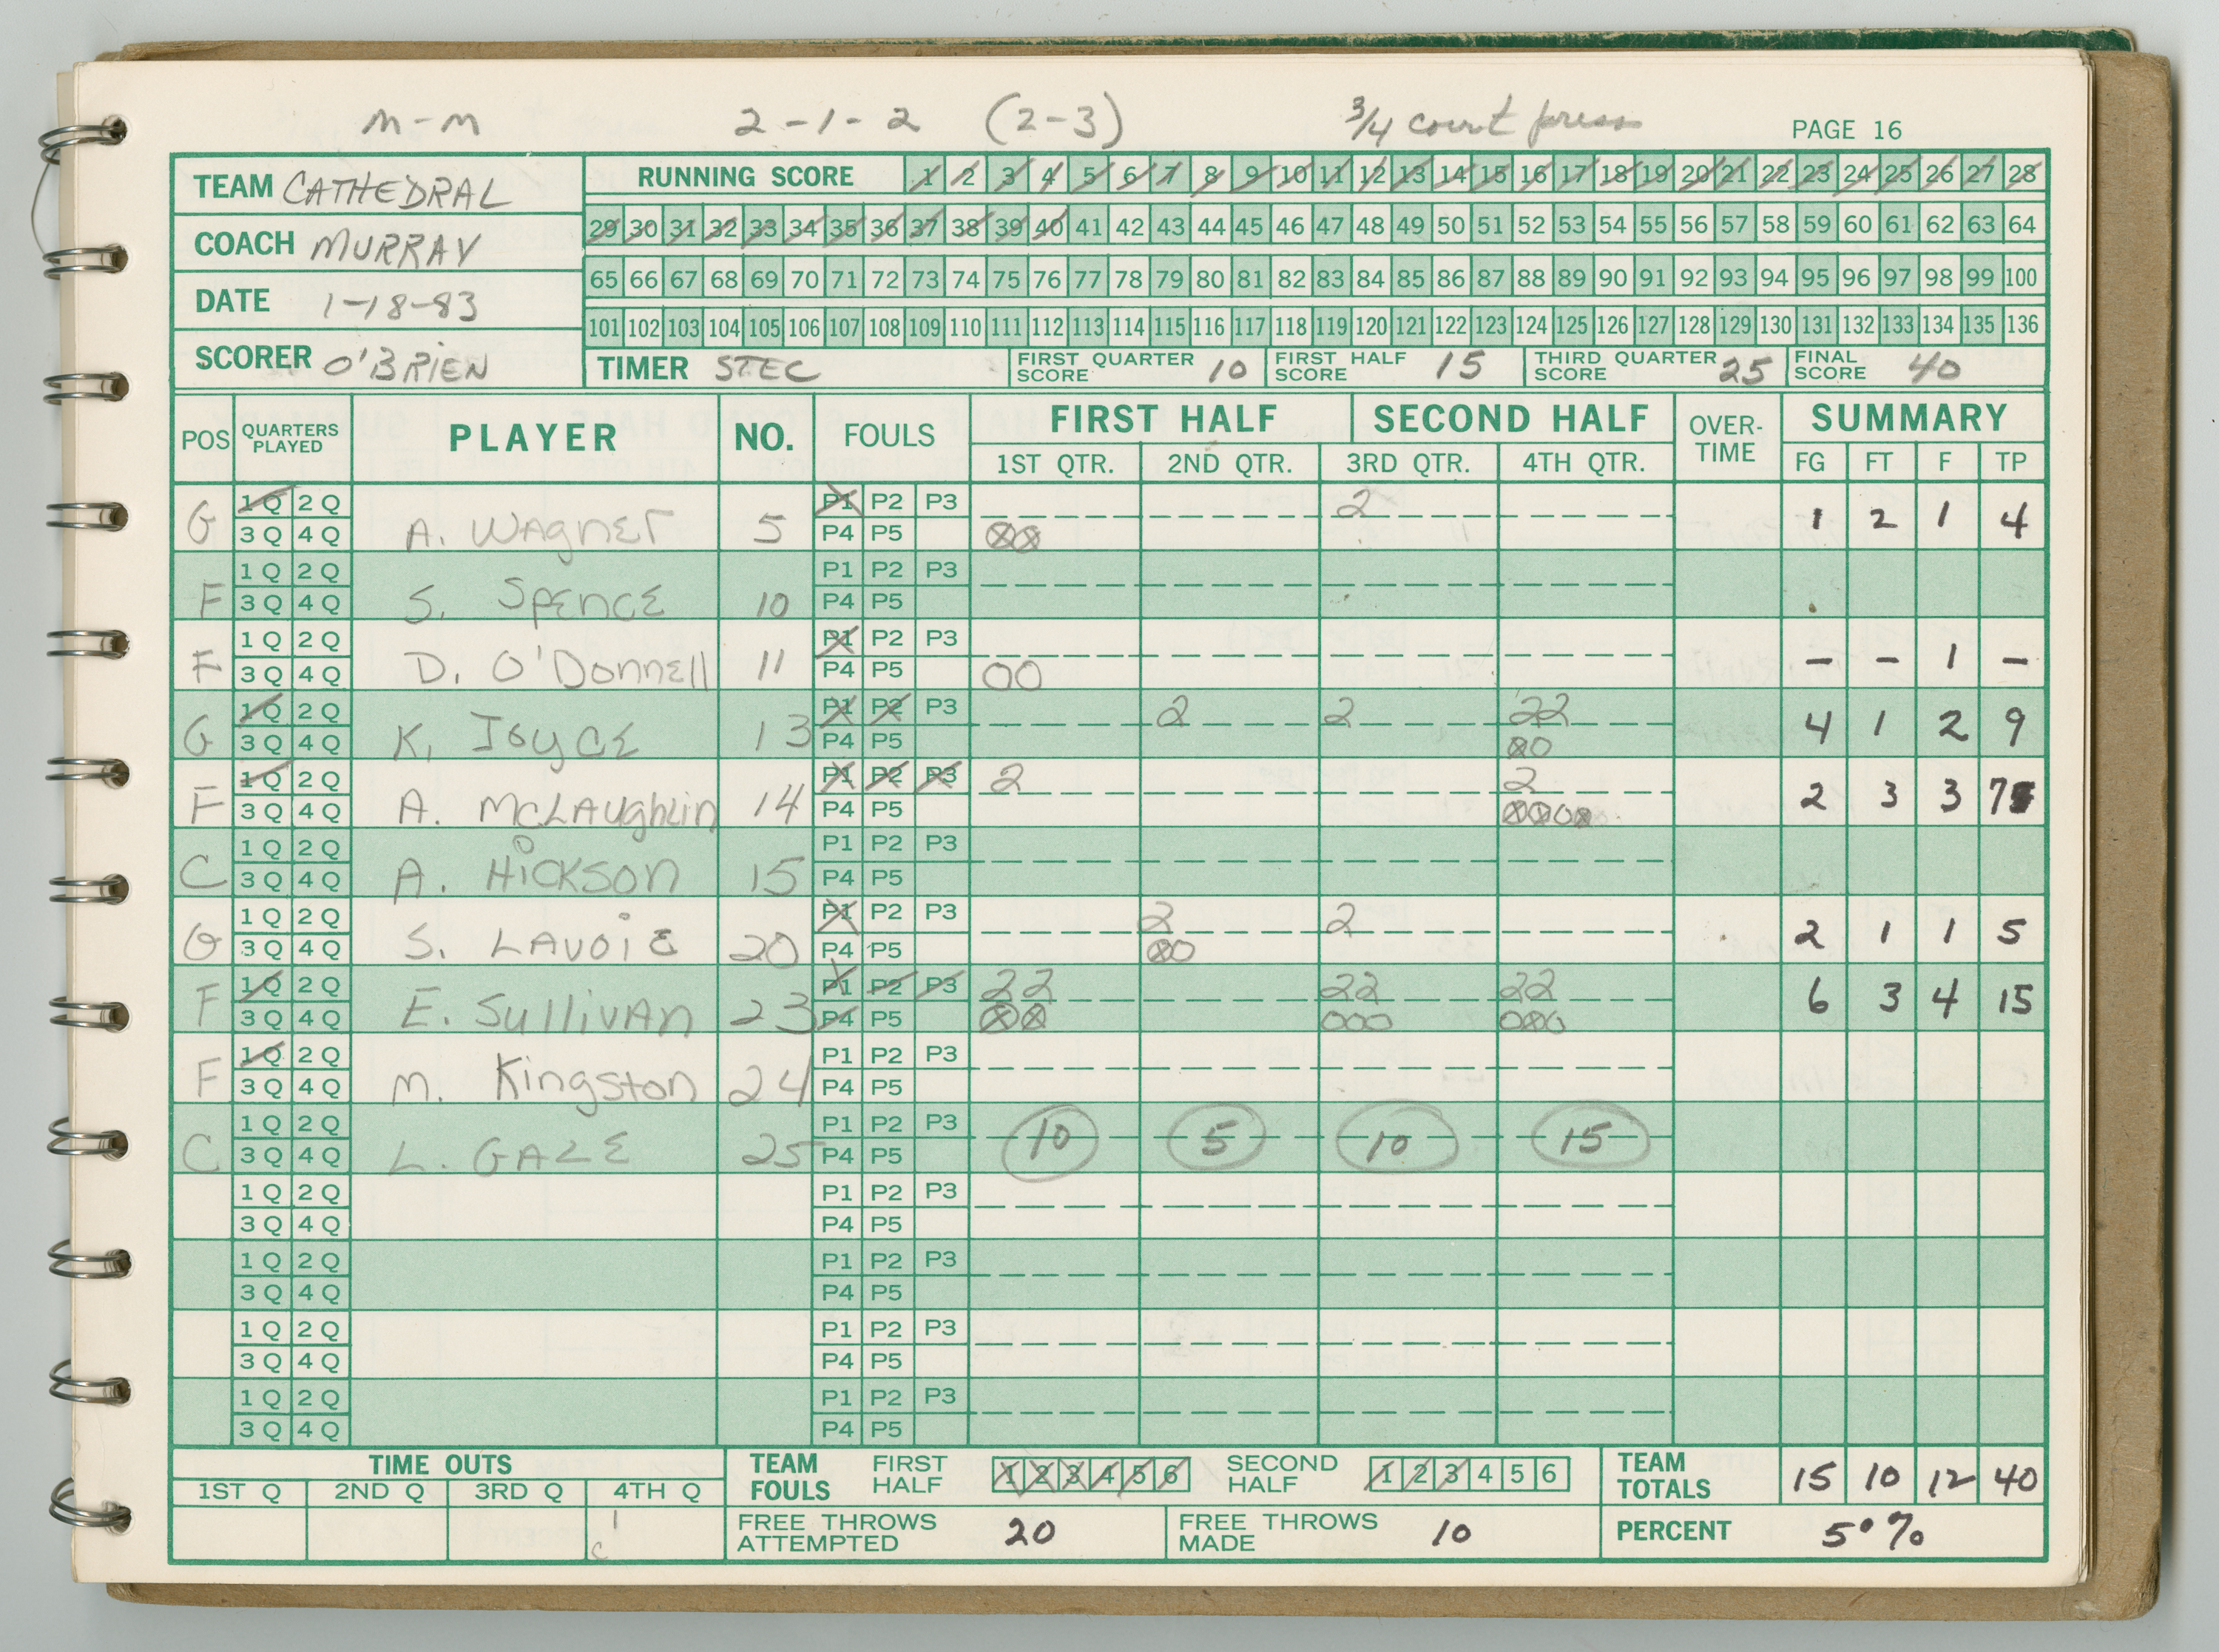 M-M 2-1-2 (2-3) 3/4 court press
PAGE 16
TEAM CATHEDRAL
COACH MURRAY
DATE 1-18-83
SCORER O'BRIEN
RUNNING SCORE 1 2 3 4 5 6 7 8 9 10 11 12 13 14 15 16 17 18 19 20 21 22 23 24 25 26 27 28
29 30 31 32 33 34 35 36 37 38 39 40 41 42 43 44 45 46 47 48 49 50 51 52 53 54 55 56 57 58 59 60 61 62 63 64
65 66 67 68 69 70 71 72 73 74 75 76 77 78 79 80 81 82 83 84 85 86 87 88 89 90 91 92 93 94 95 96 97 98 99 100
101 102 103 104 105 106 107 108 109 110 111 112 113 114 115 116 117 118 119 120 121 122 123 124 125 126 127 128 129 130 131 132 133 134 135 136
TIMER STEC FIRST QUARTER SCORE 10 FIRST HALF SCORE 15 THIRD QUARTER SCORE 25 FINAL SCORE 40
POS QUARTERS PLAYED PLAYER NO. FOULS FIRST HALF SECOND HALF OVER-TIME SUMMARY
1ST QTR. 2ND QTR. 3RD QTR. 4TH QTR. FG FT F TP
G 1Q 2Q A. WAGNER 5 P1 P2 P3 2 1 2 1 4
3Q 4Q P4 P5
F 1Q 2Q S. SPENCE 10 P1 P2 P3
3Q 4Q P4 P5
F 1Q 2Q D. O'DONNELL 11 P1 P2 P3 - - 1 -
3Q 4Q P4 P5 OO
G 1Q 2Q K. JOYCE 13 P1 P2 P3 2 2 22 4 1 2 9
3Q 4Q P4 P5
F 1Q 2Q A. McLAUGHLIN 14 P1 P2 P3 2 2 2 3 3 7
3Q 4Q P4 P5
C 1Q 2Q A. HICKSON 15 P1 P2 P3
3Q 4Q P4 P5
G 1Q 2Q S. LAVOIE 20 P1 P2 P3 2 2 2 1 1 5
3Q 4Q P4 P5
F 1Q 2Q E. SULLIVAN 23 P1 P2 P3 22 22 22 6 3 4 15
3Q 4Q P4 P5 OOO
F 1Q 2Q M. KINGSTON 24 P1 P2 P3
3Q 4Q P4 P5
C 1Q 2Q L. GALE 25 P1 P2 P3 10 5 10 15
3Q 4Q P4 P5
1Q 2Q P1 P2 P3
3Q 4Q P4 P5
1Q 2Q P1 P2 P3
3Q 4Q P4 P5
1Q 2Q P1 P2 P3
3Q 4Q P4 P5
1Q 2Q P1 P2 P3
3Q 4Q P4 P5
TIME OUTS
1ST Q 2ND Q 3RD Q 4TH Q
1
C
TEAM FOULS FIRST HALF 1 2 3 4 5 6 SECOND HALF 1 2 3 4 5 6
TEAM TOTALS 15 10 12 40
FREE THROWS ATTEMPTED 20 FREE THROWS MADE 10
PERCENT 50%